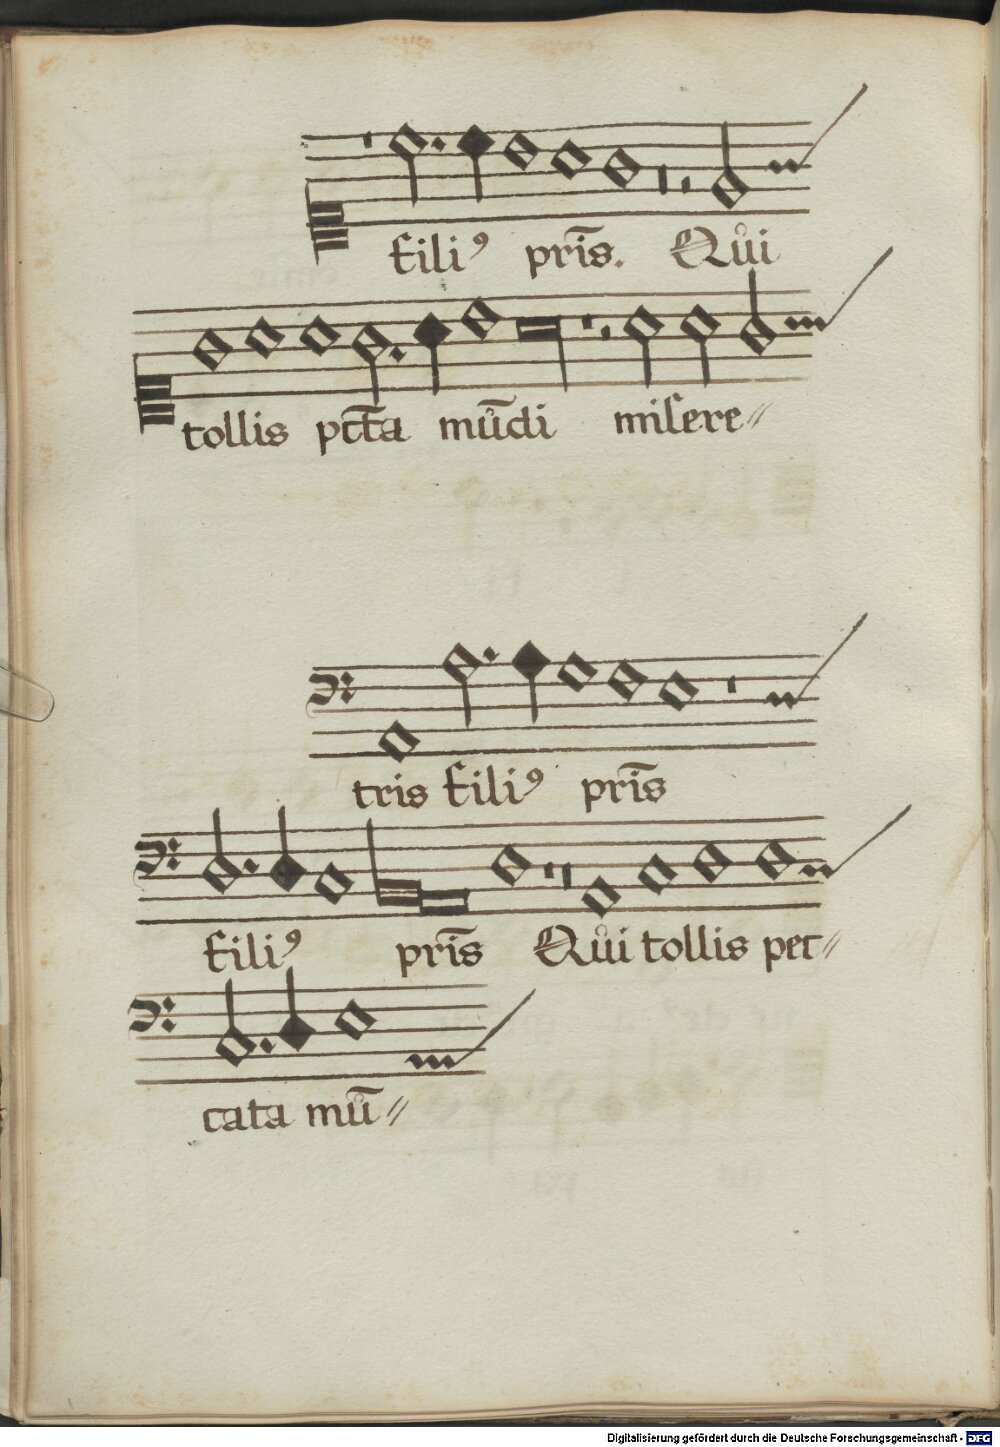 filiꝰ pr̄is. Qůi
tollis pct̄a mu̇̄di misere〃
tris filiꝰ pr̄is
filiꝰ pr̄is Qůi tollis pec〃
cata mů̄〃
Digitalisierung gefördert durch die Deutsche Forschungsgemeinschaft - DFG